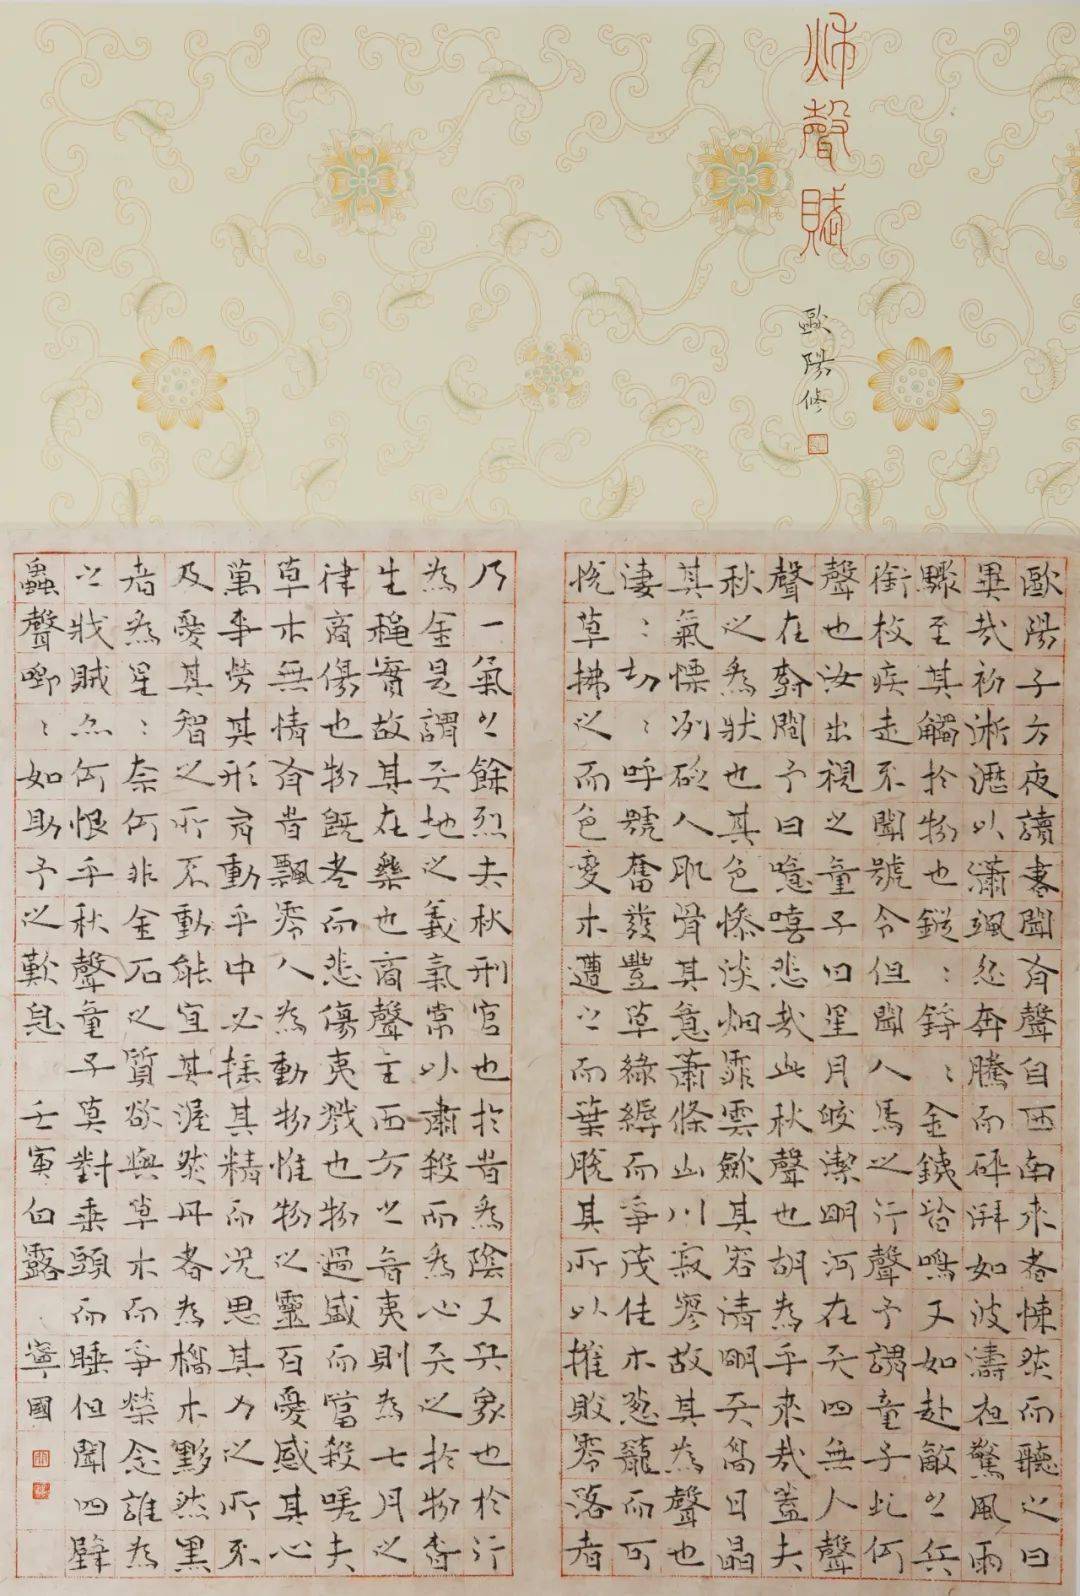 秌聲賦
歐陽修
歐陽子方夜讀書聞有聲自西南來者悚然而聽之曰
異哉初淅瀝以瀟颯忽奔騰而砰湃如波濤夜驚風雨
驟至其觸於物也鏦:錚:金鐵皆鳴又如赴敵之兵
銜枚疾走不聞號令但聞人馬之行聲予謂童子此何
聲也汝出視之童子曰星月皎潔明河在天四無人聲
聲在樹間予曰噫嘻悲哉此秋聲也胡為乎來哉蓋夫
秋之為狀也其色慘淡烟霏雲斂其容清明天高日晶
其氣慄冽砭人肌骨其意蕭條山川寂寥故其為聲也
淒:切:呼號奮發豐草綠縟而爭茂佳木蔥蘢而可
悅草拂之而色變木遭之而葉脫其所以摧敗零落者
乃一氣之餘烈夫秋刑官也於時為陰又兵象也於行
為金是謂天地之義氣常以肅殺而為心天之於物春
生穐實故其在樂也商聲主西方之音夷則為七月之
律商傷也物既老而悲傷夷戮也物過盛而當殺嗟夫
草木無情有時飄零人為動物惟物之靈百憂感其心
萬事勞其形有動乎中必搖其精而況思其力之所不
及憂其智之所不動能宜其渥然丹者為槁木黟然黑
者為星:奈何非金石之質欲與草木而爭榮念誰為
之戕賊亦何恨乎秋聲童子莫對垂頭而睡但聞四壁
蟲聲唧:如助予之歎息 壬寅白露 寧國